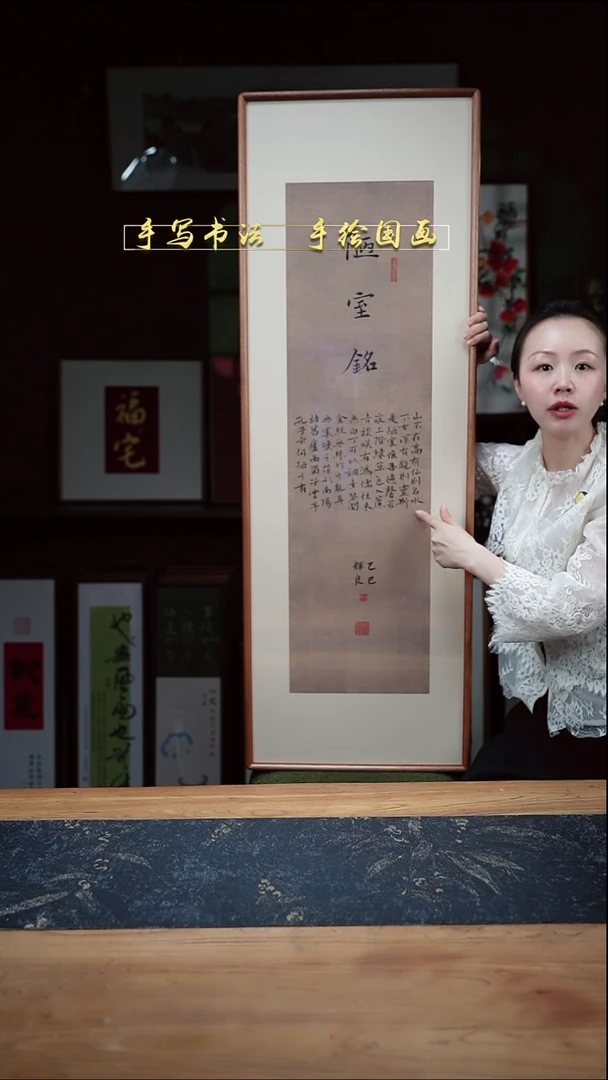 手写书法 手绘国画
陋室銘
山不在高有仙則名水
不在深有龍則靈斯
是陋室惟吾德馨苔
痕上階綠草色入簾
青談笑有鴻儒往來
無白丁可以調素琴閱
金經無絲竹之亂耳
無案牘之勞形南陽
諸葛廬西蜀子雲亭
孔子云何陋之有
乙巳
良
福宅
也無風雨也